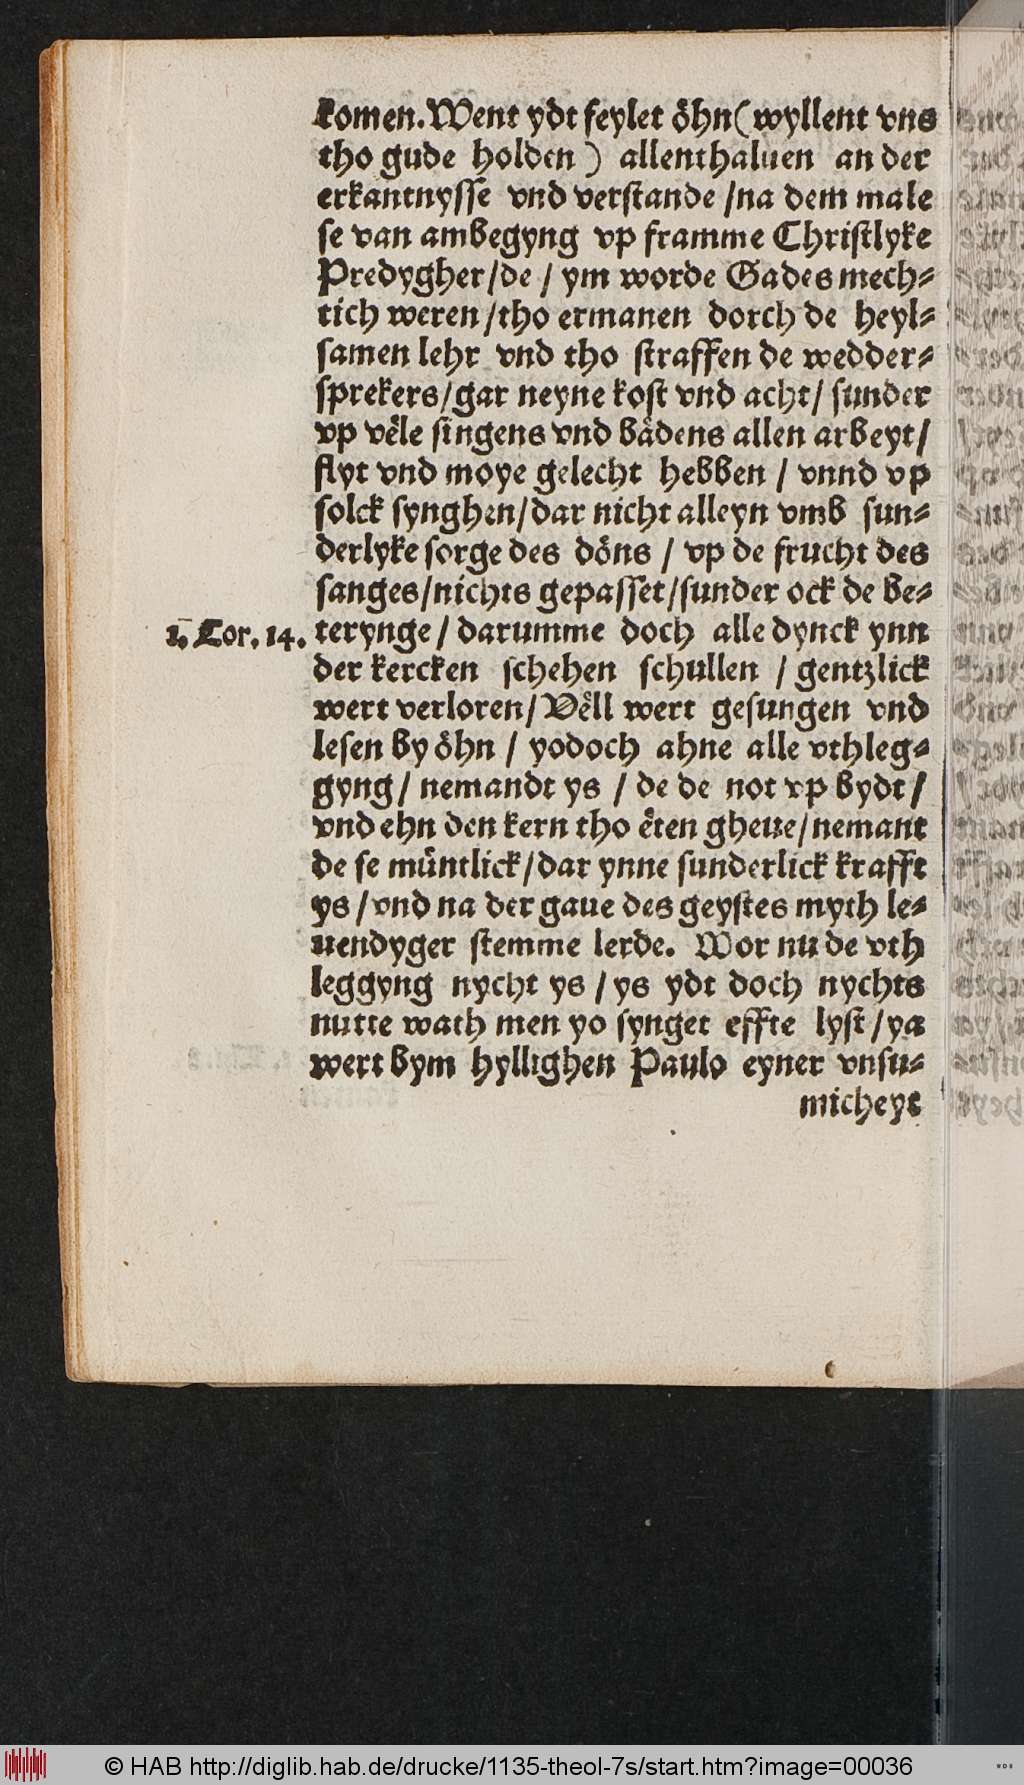 komen. Went ydt feylet öhn (wyllent vns
tho gude holden) allenthaluen an der
erkantnysse vnd verstande / na dem male
se van ambegyng vp framme Christlyke
Predygher / de / ym worde Gades mech⸗
tich weren / tho ermanen dorch de heyl⸗
samen lehr vnd tho straffen de wedder⸗
sprekers / gar neyne kost vnd acht / sunder
vp vële singens vnd bädens allen arbeyt /
flyt vnd moye gelecht hebben / vnnd vp
solck synghen / dar nicht alleyn vmb sun⸗
derlyke sorge des döns / vp de frucht des
sanges / nichts gepasset / sunder ock de be⸗
1. Cor. 14. terynge / darumme doch alle dynck ynn
der kercken schehen schullen / gentzlick
wert verloren / Vëll wert gesungen vnd
lesen by öhn / yodoch ahne alle vthleg⸗
gyng / nemandt ys / de de not vp bydt /
vnd ehn den kern tho ëten gheue / nemant
de se müntlick / dar ynne sunderlick krafft
ys / vnd na der gaue des geystes myth le⸗
uendyger stemme lerde. Wor nu de vth
leggyng nycht ys / ys ydt doch nychts
nutte wath men yo synget effte lyst / ya
wert bym hyllighen Paulo eyner vnsu⸗
nicheyt
© HAB http://diglib.hab.de/drucke/1135-theol-7s/start.htm?image=00036